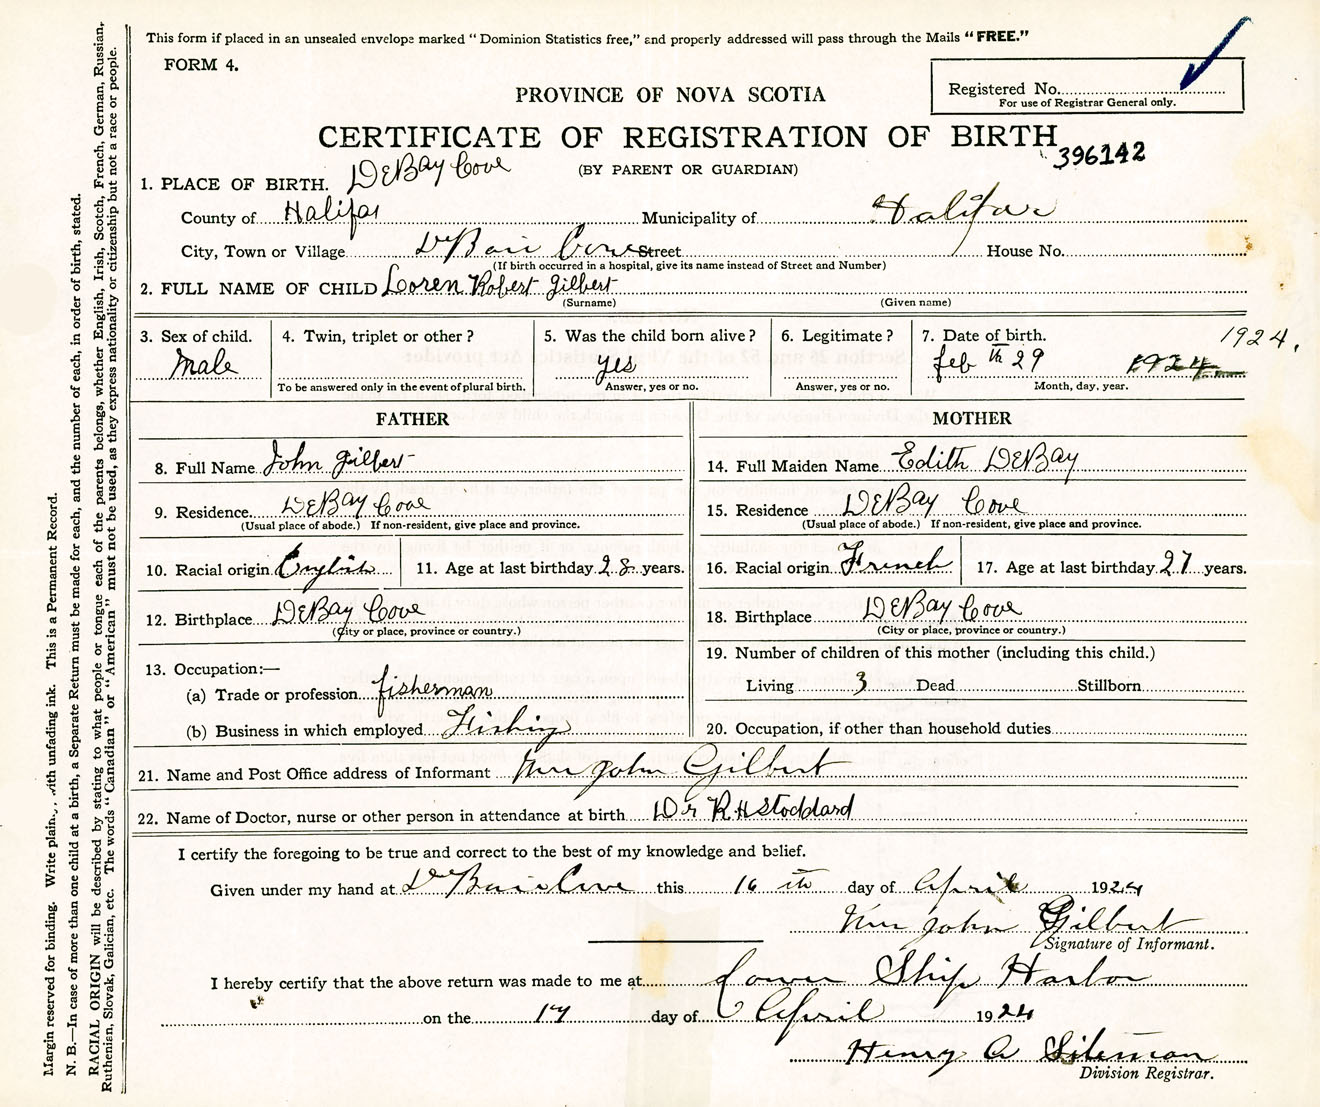 This form if placed in an unsealed envelope marked "Dominion Statistics free," and properly addressed will pass through the Mails "FREE."
FORM 4.
Registered No.
For use of Registrar General only.
PROVINCE OF NOVA SCOTIA
CERTIFICATE OF REGISTRATION OF BIRTH
396142
(BY PARENT OR GUARDIAN)
1. PLACE OF BIRTH. DeBay Cove
County of Halifax Municipality of Halifax
City, Town or Village DeBaie Cove Street House No.
(If birth occurred in a hospital, give its name instead of Street and Number)
2. FULL NAME OF CHILD Loren Robert Gilbert
(Surname) (Given name)
3. Sex of child. 4. Twin, triplet or other? 5. Was the child born alive? 6. Legitimate? 7. Date of birth. 1924.
Male yes feb th 29 1924
To be answered only in the event of plural birth. Answer, yes or no. Answer, yes or no. Month, day, year.
FATHER MOTHER
8. Full Name John Gilbert 14. Full Maiden Name Edith DeBay
9. Residence DeBay Cove 15. Residence DeBay Cove
(Usual place of abode.) If non-resident, give place and province. (Usual place of abode.) If non-resident, give place and province.
10. Racial origin English 11. Age at last birthday 28 years. 16. Racial origin French 17. Age at last birthday 27 years.
12. Birthplace DeBay Cove 18. Birthplace DeBay Cove
(City or place, province or country.) (City or place, province or country.)
13. Occupation:— 19. Number of children of this mother (including this child.)
(a) Trade or profession fisherman Living 3 Dead Stillborn
(b) Business in which employed Fishing 20. Occupation, if other than household duties
21. Name and Post Office address of Informant Mrs John Gilbert
22. Name of Doctor, nurse or other person in attendance at birth Dr R.H Stoddard
I certify the foregoing to be true and correct to the best of my knowledge and belief.
Given under my hand at DeBaie Cove this 16 th day of April 1924
Mrs John Gilbert
Signature of Informant.
I hereby certify that the above return was made to me at Lower Ship Harbor
on the 17 day of April 1924
Henry A Siteman
Division Registrar.
Margin reserved for binding. Write plain, with unfading ink. This is a Permanent Record.
N. B.—In case of more than one child at a birth, a Separate Return must be made for each, and the number of each, in order of birth, stated.
RACIAL ORIGIN will be described by stating to what people or tongue each of the parents belongs, whether English, Irish, Scotch, French, German, Russian,
Ruthenian, Slovak, Galician, etc. The words "Canadian" or "American" must not be used, as they express nationality or citizenship but not a race or people.